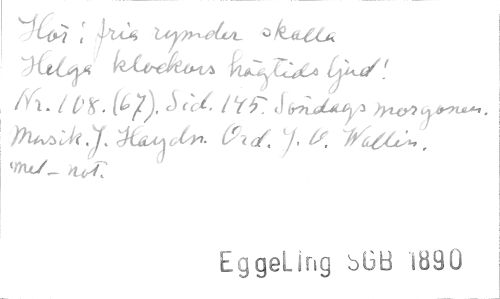 Hör i fria rymder skalla
Helga klockors högtids ljud!
Nr. 108. (67). Sid. 145. Söndags morgonen.
Musik. J. Haydn. Ord. J. O. Wallin.
mel-not.
EggeLing SGB 1890